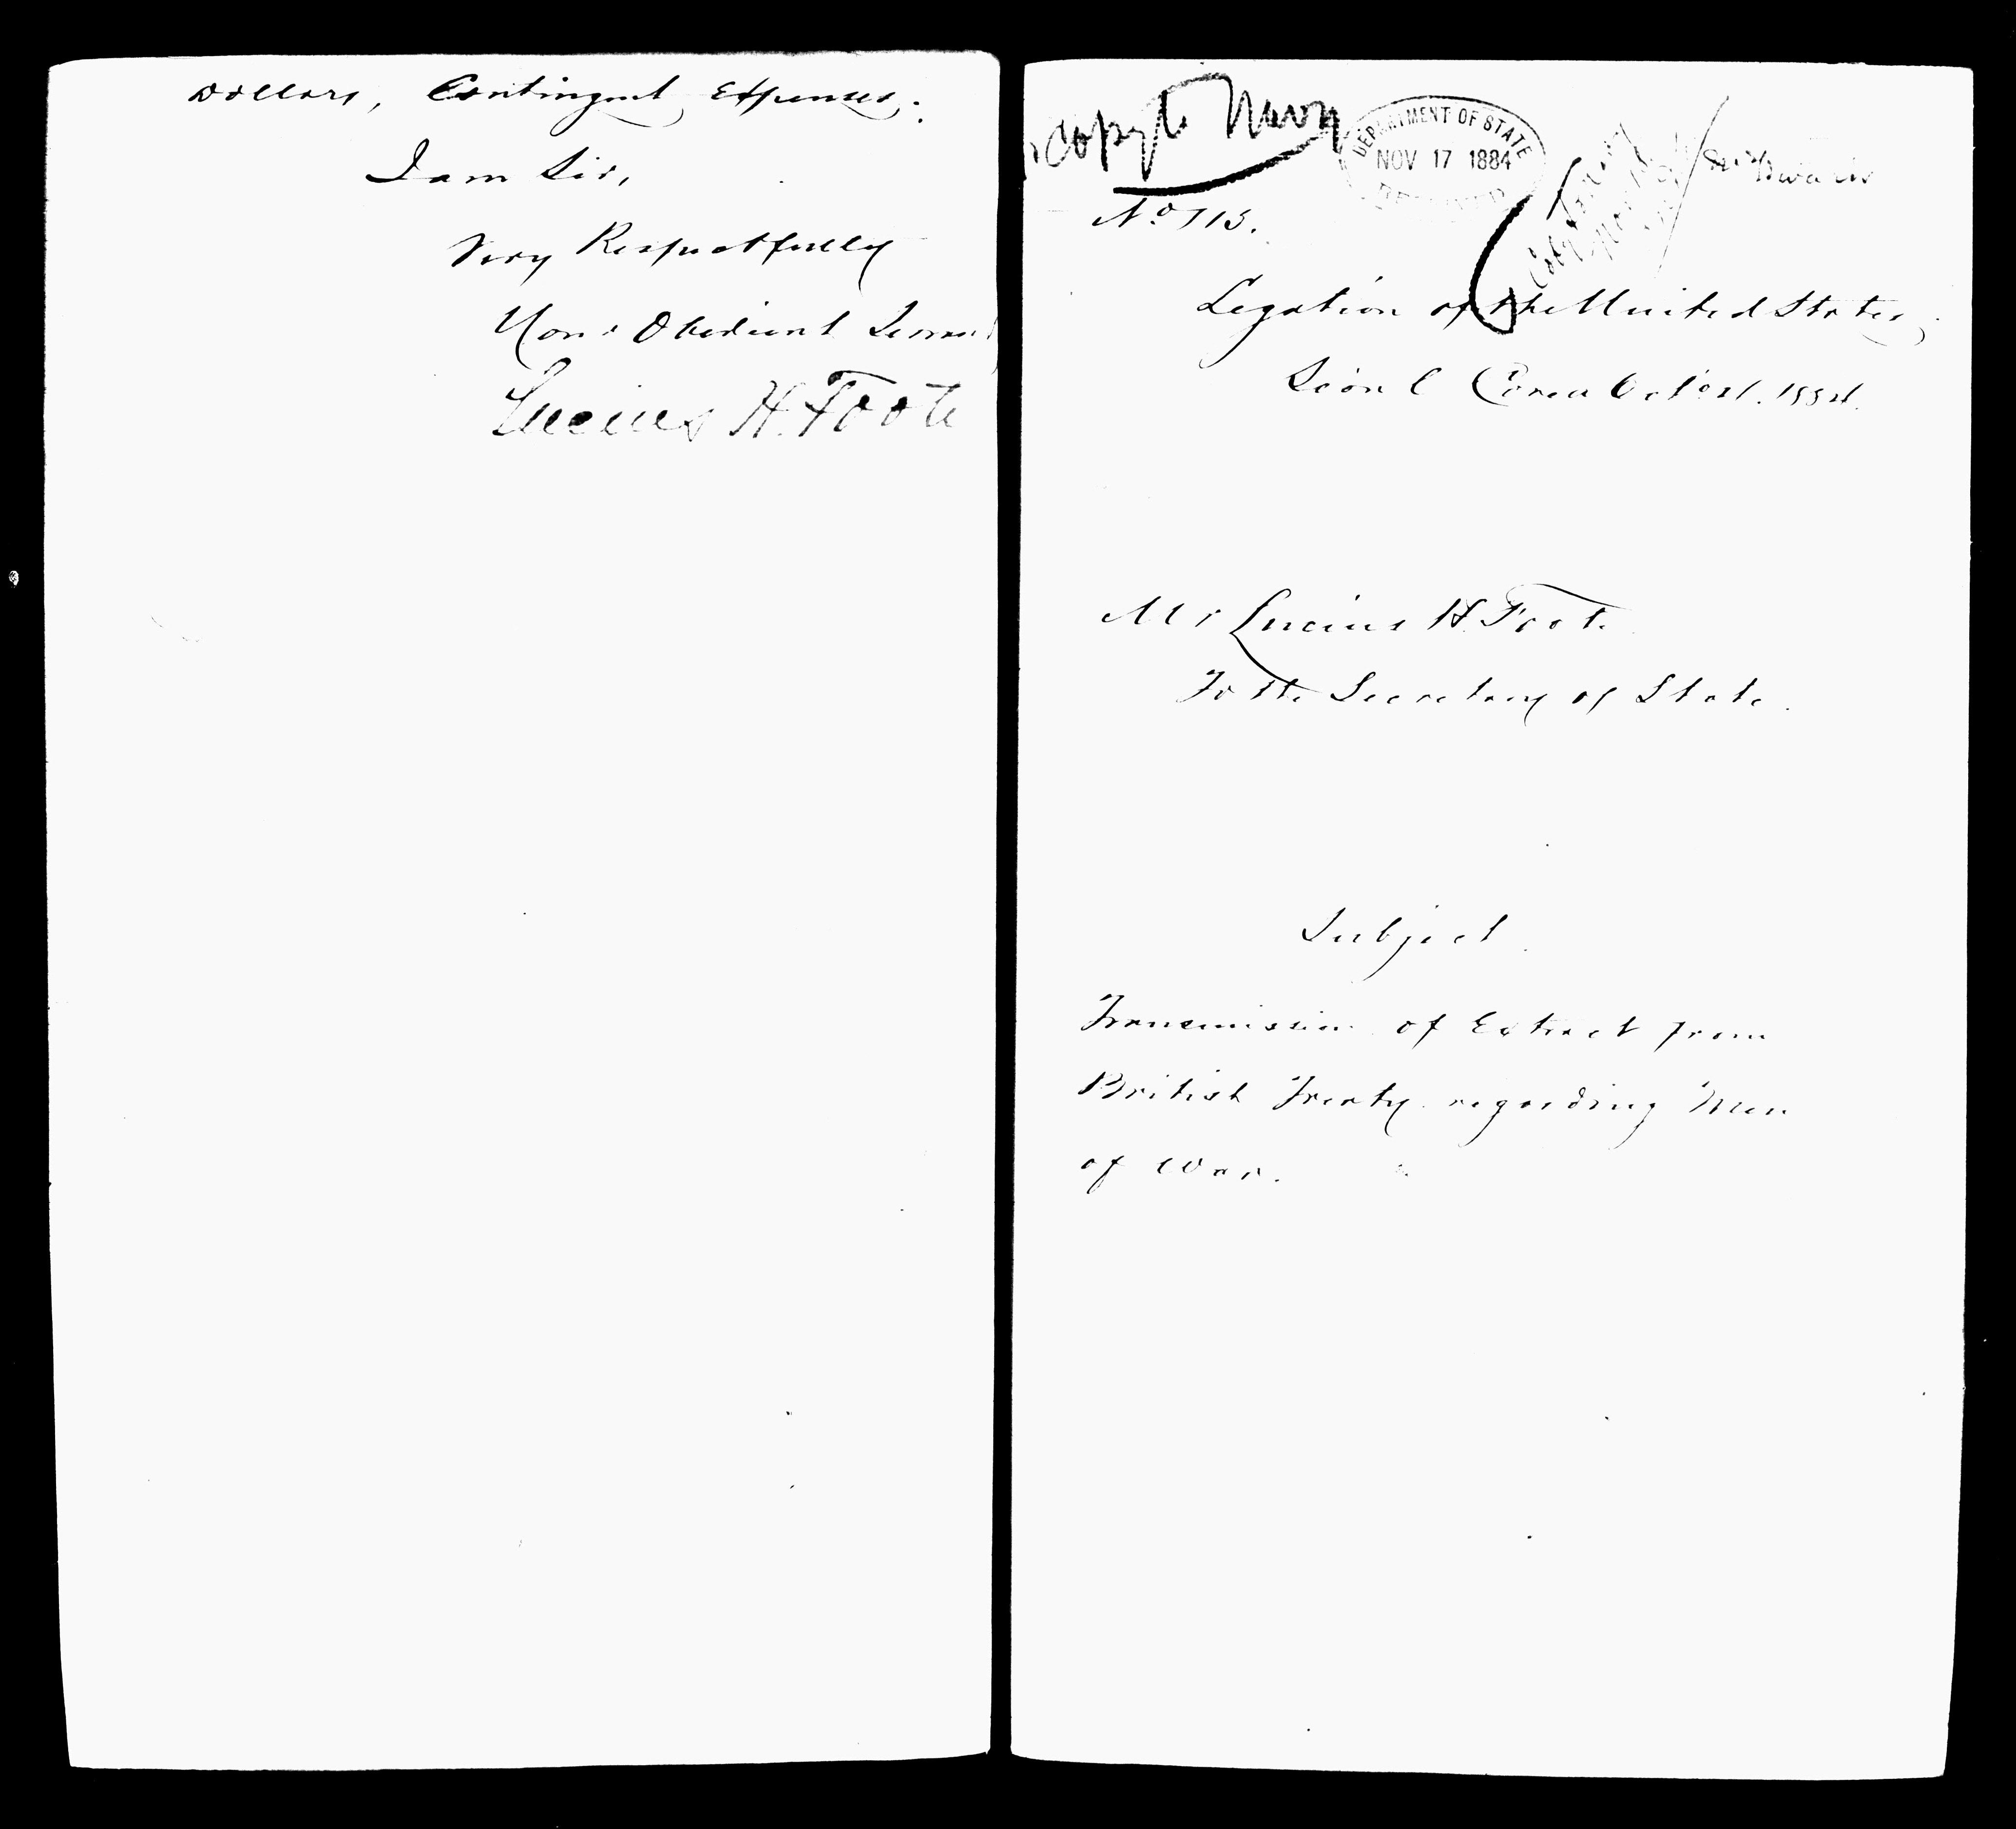 Dollars, Contingent Expenses.
I am Sir,
Very Respectfully
Your Obedient Servant
Lucius H. Foote
Copy to Navy
DEPARTMENT OF STATE
NOV 17 1884
RECEIVED
No 115.
Legation of the United States,
Séoul Corea Oct 1884.
Mr Lucius H. Foote
To the Secretary of State.
Subject.
Transmission of Extract from
British Treaty regarding Men
of War.